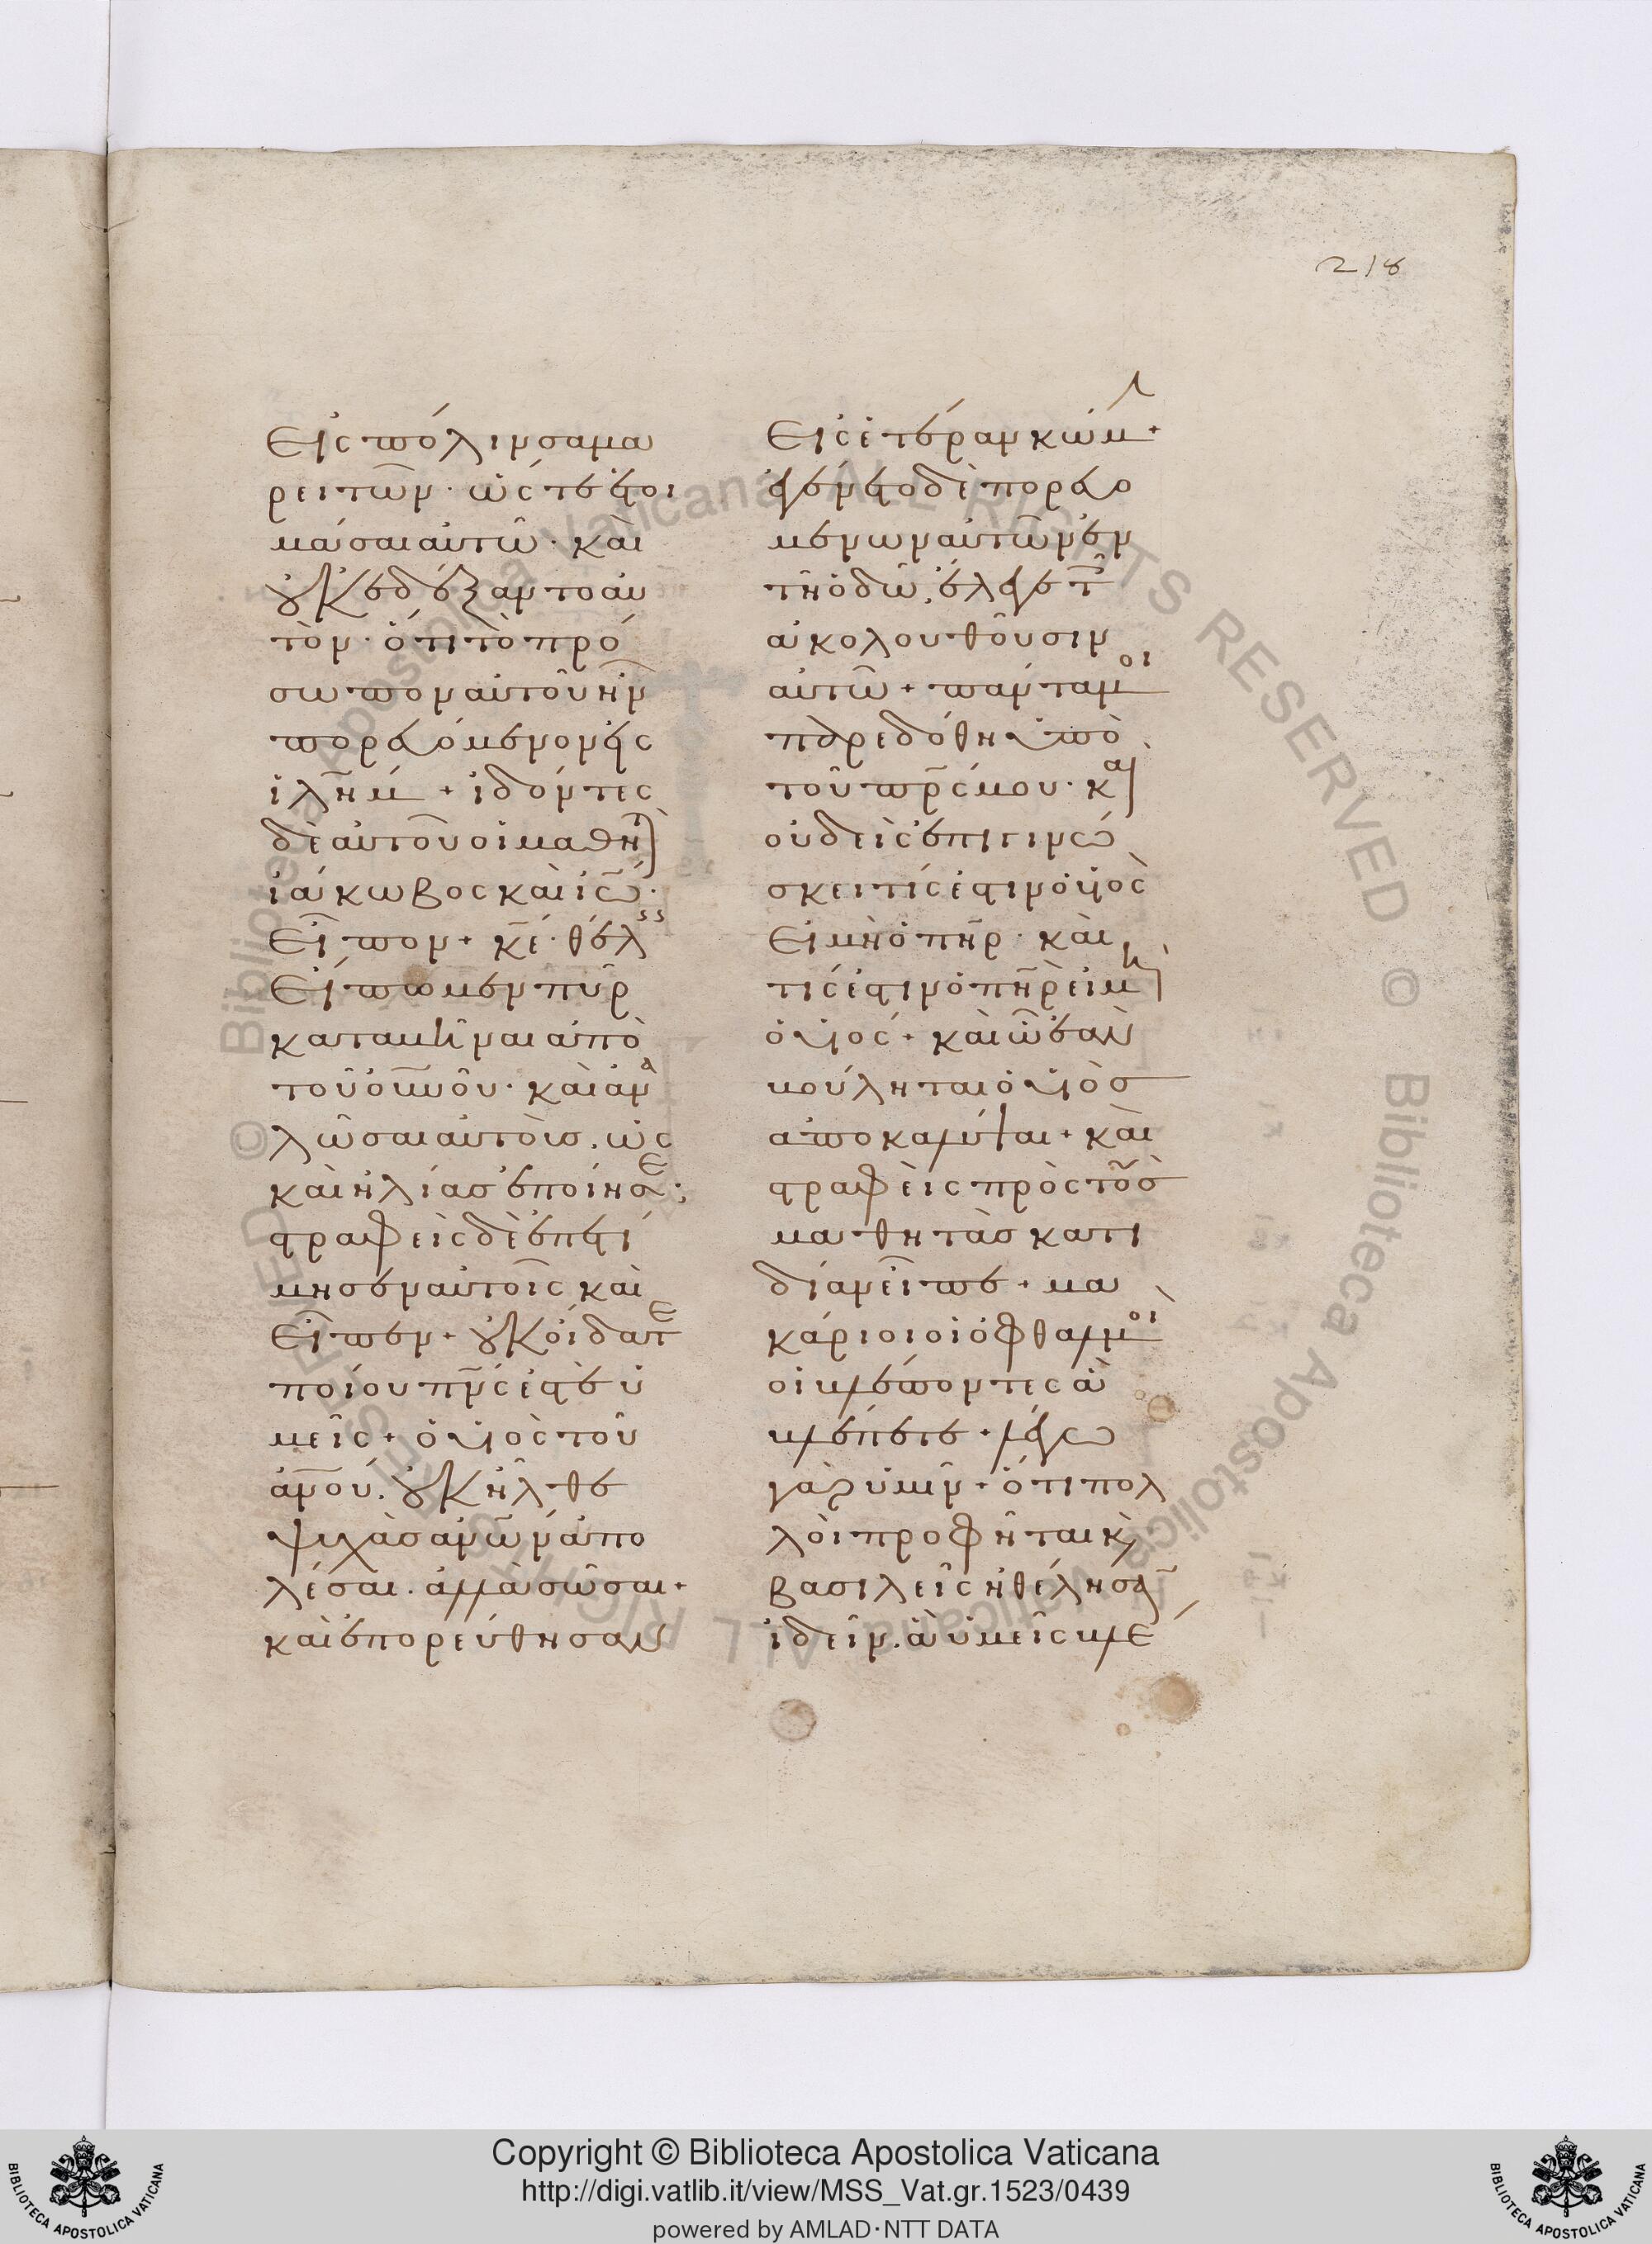 218
εἰς πόλιν σαμα
ρειτῶν· ὥστε ἑτοι
μάσαι αὐτῶ· καὶ
οὐκ ἐδέξαντο αὐ
τὸν· ὅτι τὸ πρό
σωπον αὐτοῦ ἦν
πορευόμενον εἰς
ἱλῆμ + ἰδόντες
δὲ αὐτὸν οἱ μαθη
ἰάκωβος καὶ ἰω·
εἶπον + κε· θέλεις
εἴπωμεν πῦρ
καταβῆναι ἀπὸ
τοῦ οὐνοῦ· καὶ ἀνα
λῶσαι αὐτοὺς, ὡς
καὶ ἠλίας ἐποίησε;
στραφεὶς δὲ ἐπετί
μησεν αὐτοῖς καὶ
εἶπεν + οὐκ οἴδατε
ποίου πνς ἐστὲ ὑ
μεῖς + ὁ υἱὸς τοῦ
ἀνου, οὐκ ἦλθε
ψυχὰς ἀνων ἀπο
λέσαι. ἀλλὰ σῶσαι +
καὶ ἐπορεύθησαν
εἰς ἑτέραν κώμ +
ἐγένετο δὲ πορευο
μένων αὐτῶν ἐν
τῆ ὁδῶ, ἔλεγε τοῖς
ἀκολουθοῦσιν
αὐτῶ + πάντα μοι
παρεδόθη ὑπὸ
τοῦ πρς μου· καὶ
οὐδεὶς ἐπιγινώ
σκει τίς ἐστιν ὁ υἱὸς
εἰ μὴ ὁ πηρ· καὶ
τίς ἐστιν ὁ πηρ εἰ μὴ
ὁ υἱός + καὶ ὧ ἐὰν
βούληται ὁ υἱὸς
ἀποκαλύψαι + καὶ
στραφεὶς πρὸς τοὺς
μαθητὰς κατι
δίαν εἶπε + μα
κάριοι οἱ ὀφθαλμοὶ
οἱ βλέποντες ἃ
βλέπετε + λέγω
γὰρ ὑμῖν + ὅτι πολ
λοὶ προφῆται κ
βασιλεῖς ἠθέλησαν
ἰδεῖν. ἃ ὑμεῖς βλέ
Copyright © Biblioteca Apostolica Vaticana
http://digi.vatlib.it/view/MSS_Vat.gr.1523/0439
powered by AMLAD·NTT DATA
BIBLIOTECA APOSTOLICA VATICANA
BIBLIOTECA APOSTOLICA VATICANA